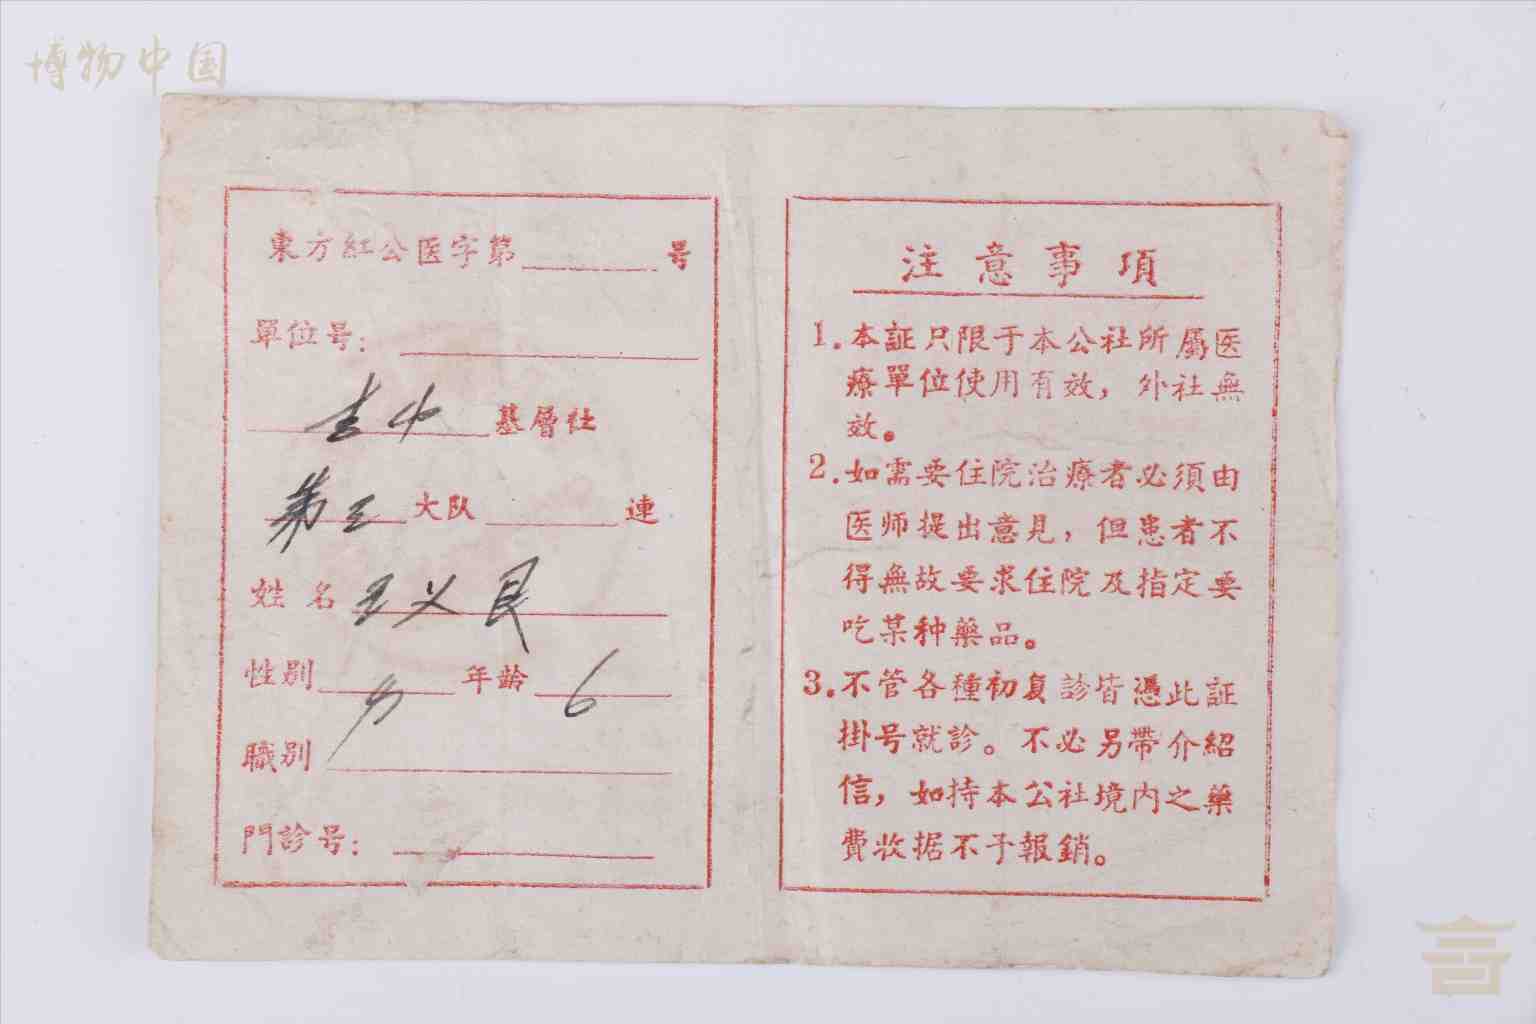 博物中国
東方紅公医字第 号
單位号：
基層社
第三大队 連
姓名 王义良
性别 男 年龄 6
職别
門診号：
注意事項
1.本証只限于本公社所屬医
療單位使用有效，外社無
效。
2.如需要住院治療者必須由
医师提出意見，但患者不
得無故要求住院及指定要
吃某种藥品。
3.不管各種初复診皆憑此証
掛号就診。不必另帶介紹
信，如持本公社境内之藥
費收据不予報銷。